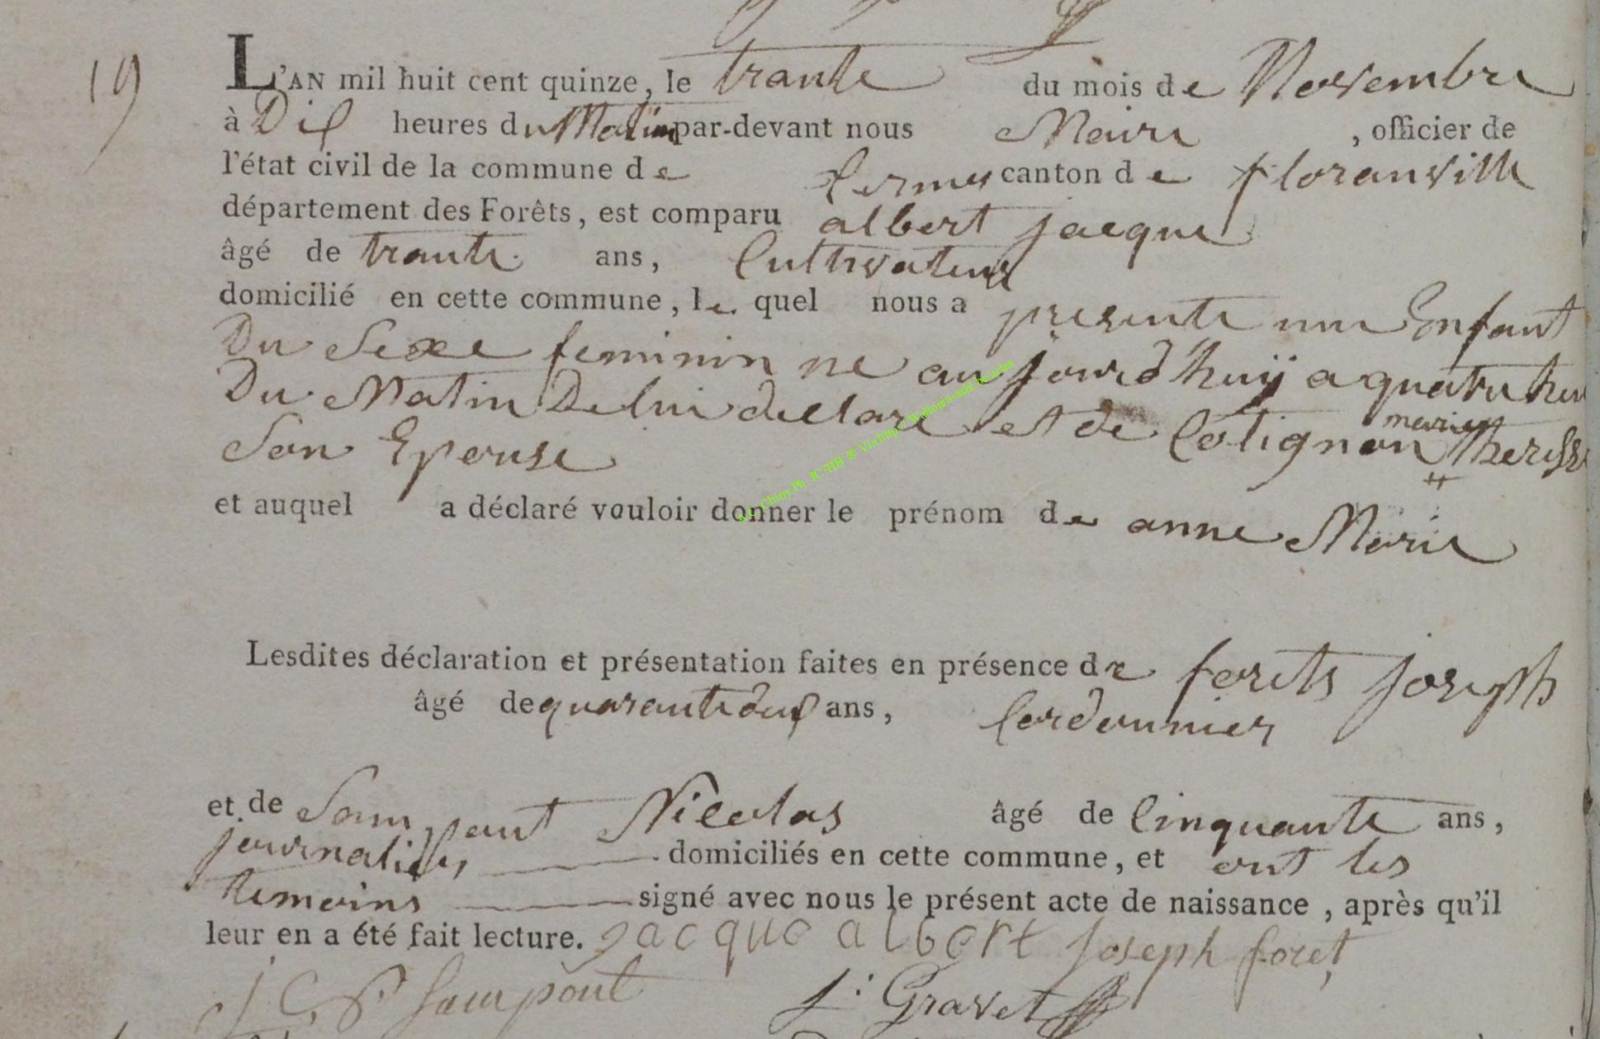 19
L'AN mil huit cent quinze, le trante du mois de Novembre
à Dix heures du Matin par-devant nous Maire , officier de
l'état civil de la commune de termes canton de floranville
département des Forêts, est comparu albert jacque
âgé de trante ans, Cultivateur
domicilié en cette commune, le quel nous a presente une Enfant
Du Sexe feminin ne aujourd'huÿ a quatre heu
Du Matin De lui declare et de Cotignon marie Theresse
Son Epouse
et auquel a déclaré vouloir donner le prénom de anne Marie
Lesdites déclaration et présentation faites en présence de forets joseph
âgé de quarante deux ans, Cordonnier
et de Sampont Nicolas âgé de Cinquante ans,
journalier domiciliés en cette commune, et ont les
temoins signé avec nous le présent acte de naissance, après qu'il
leur en a été fait lecture. jacque albert joseph foret
Sampont J: Gravet